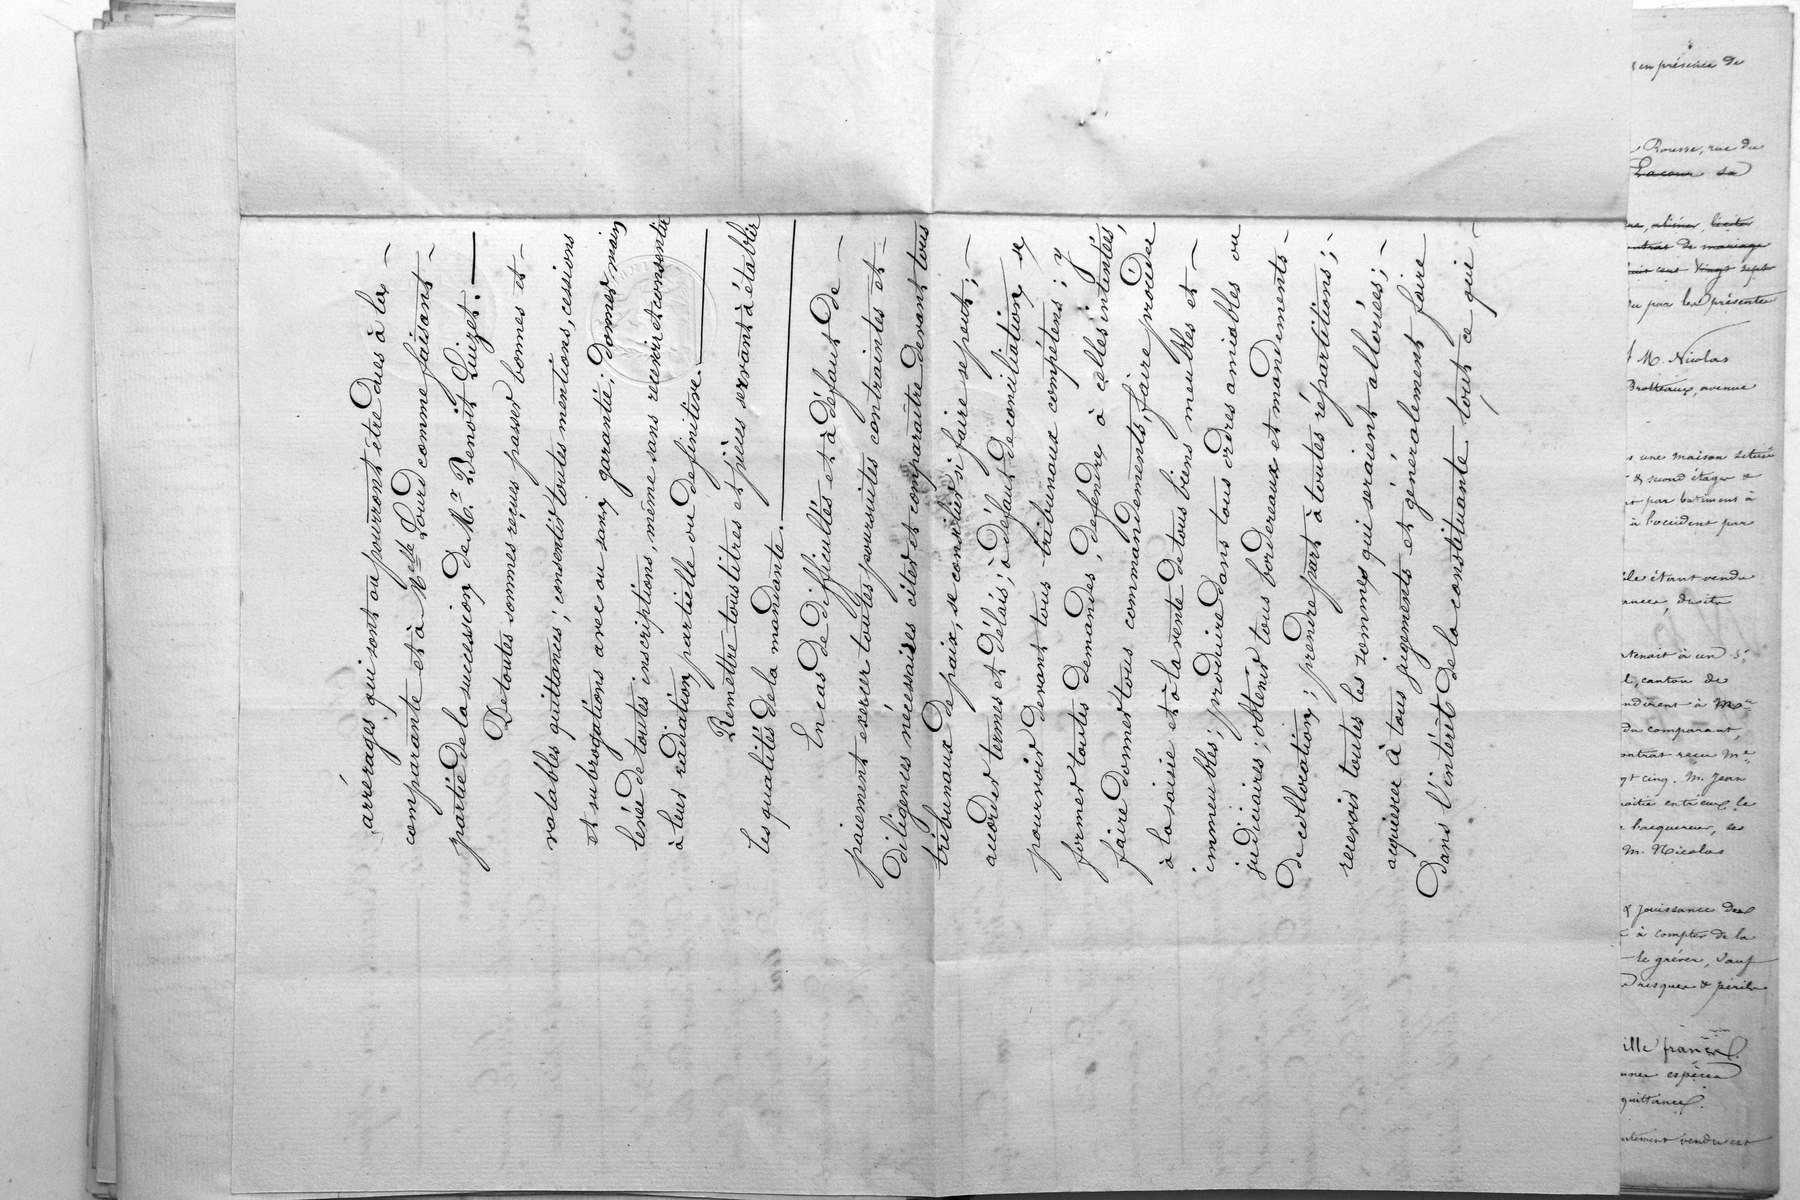 arrérages qui sont ou pourront être dus à la
comparante et à Melle Lourd comme faisant
partie de la succession de Mr. Benoit Luizet.
De toutes sommes reçues passer bonnes et
valables quittances; consentir toutes mentions, cessions
et subrogations avec ou sans garantie; donner main
levée de toutes inscriptions, même sans recevoir et consentir
à leur radiation partielle ou définitive.
Remettre tous titres et pièces servant à établir
les qualités de la mandante.
En cas de difficultés et à défaut de
paiement exercer toutes poursuites contraintes et
diligences nécessaires citer et comparaître devant tous
tribunaux de paix, se concilier si faire se peut;
accorder termes et délais; à défaut de conciliation, se
pourvoir devant tous tribunaux compétens; y
former toutes demandes, défendre à celles intentées,
faire donner tous commandements, faire procéder
à la saisie et à la vente de tous biens meubles et
immeubles; produire dans tous ordres amiables ou
judiciaires; obtenir tous bordereaux et mandements
de collocation; prendre part à toutes répartitions;
recevoir toutes les sommes qui seraient allouées;
acquiescer à tous jugements et généralement faire
dans l'intérêt de la constituante tout ce qui
en présence de
Rousse, rue du
Lacour sa
aliéner, liciter
contrat de mariage
huit cent vingt sept
par les présentes
M. Nicolas
Brotteaux, avenue
une maison située
& second étages &
par batimens à
à l'occident par
étant vendu
droits
à un Sr
canton de
à Mr
du comparant,
contrat reçu Me
cinq. M. Jean
entr'eux le
l'acquereur, les
M. Nicolas
& jouissance des
à compter de la
le gréver, sauf
risques & périls
mille francs
espèces
quittance.
vendu est